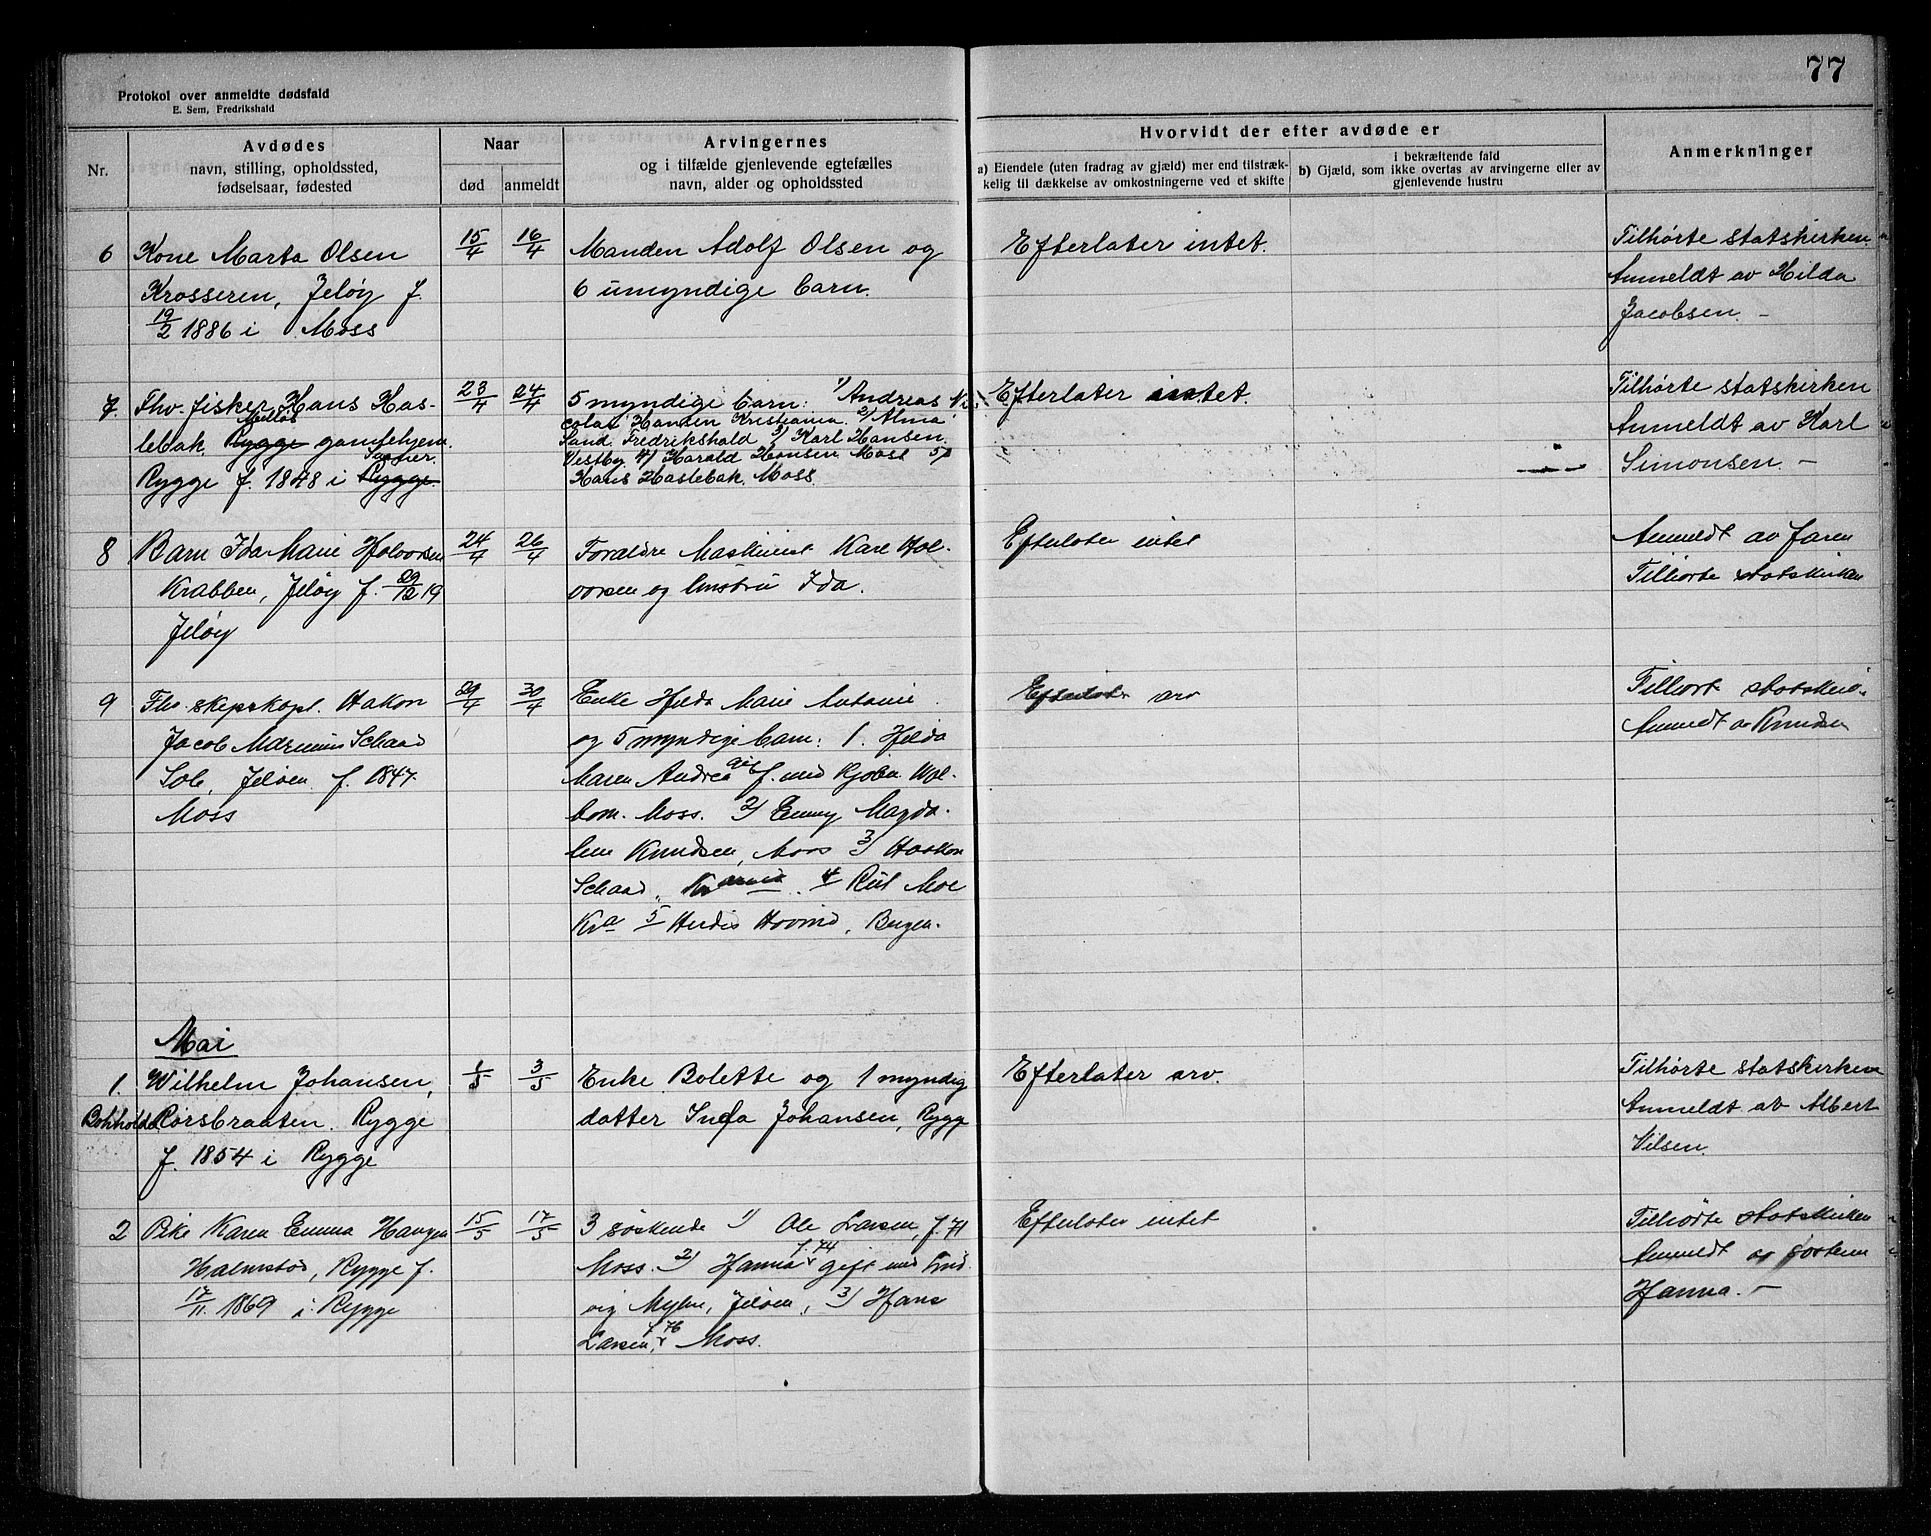 77
Protokol over anmeldte dødsfald
E. Sem, Fredrikshald
Nr.
Avdødes
navn, stilling, opholdssted,
fødselsaar, fødested
Naar
død
anmeldt
Arvingernes
og i tilfælde gjenlevende egtefælles
navn, alder og opholdssted
Hvorvidt der efter avdøde er
a) Eiendele (uten fradrag av gjæld) mer end tilstræk-
kelig til dækkelse av omkostningerne ved et skifte
i bekræftende fald
b) Gjæld, som ikke overtas av arvingerne eller av
gjenlevende hustru
Anmerkninger
6 Kone Marta Olsen
Krosseren, Jeløy f.
19/2 1886 i Moss
15/4
16/4
Manden Adolf Olsen og
6 umyndige barn.
Efterlater intet.
Tilhørte statskirken
Anmeldt av Hilda
Jacobsen. –
7. Fhv. fisker Hans Has-
lebak Rygge gamlehjem
Rygge f. 1848 i Rygge
23/4
24/4
5 myndige barn: 1) Andreas Ni-
colai Kristiania. 2) Alma
Sand. Fredrikshald 3) Karl Hansen.
Vestby 4) Harald Hansen Moss 5)
Hans Haslebak, Moss.
Efterlater intet.
Tilhørte statskirken
Anmeldt av Karl
Simonsen. –
8 Barn Ida Marie Halvorsen
Krabben, Jeløy f. 29/12 19
Jeløy
24/4
26/4
Forældre Maskinist Karl Hal-
vorsen og hustru Ida.
Efterlater intet
Anmeldt av faren
Tilhørte statskirken
9 Fhv. skipskapt. Hakon
Jacob Marinius Schaad
Jeløen f. 1847.
Moss
29/4
30/4
Enke Hilda Marie Antonie
og 5 myndige barn: 1. Hilda
Maren Andrea gif f. med Kjøbm. Wol-
bom. Moss. 2) Emmy Magda-
lene Knudsen, Moss 3) Haakon
Schaad, 4 Rut Moe
Kra 5 Herdis Hovind, Bergen.
Efterlater arv
Tilhørt statskirk.
Anmeldt av Knudsen
Mai
1. Wilhelm Johansen,
Botholds Rørsbraaten. Rygge
f. 1854 i Rygge
1/5
3/5
Enke Bolette og 1 myndig
datter Inga Johansen, Rygge
Efterlater arv.
Tilhørte statskirken
Anmeldt av Albert
Nilsen.
2 Pike Karen Emma Haugen
Halmstad, Rygge f.
17/11. 1869 i Rygge
15/5
17/5
3 søskende 1) Ole Larsen, f. 71
Moss. 2) Hanna f. 74 gift med Lud-
vig Myhre, Jeløen, 3) Hans
Larsen, f 76 Moss.
Efterlater intet
Tilhørte statskirken
Anmeldt av søsteren
Hanna. –